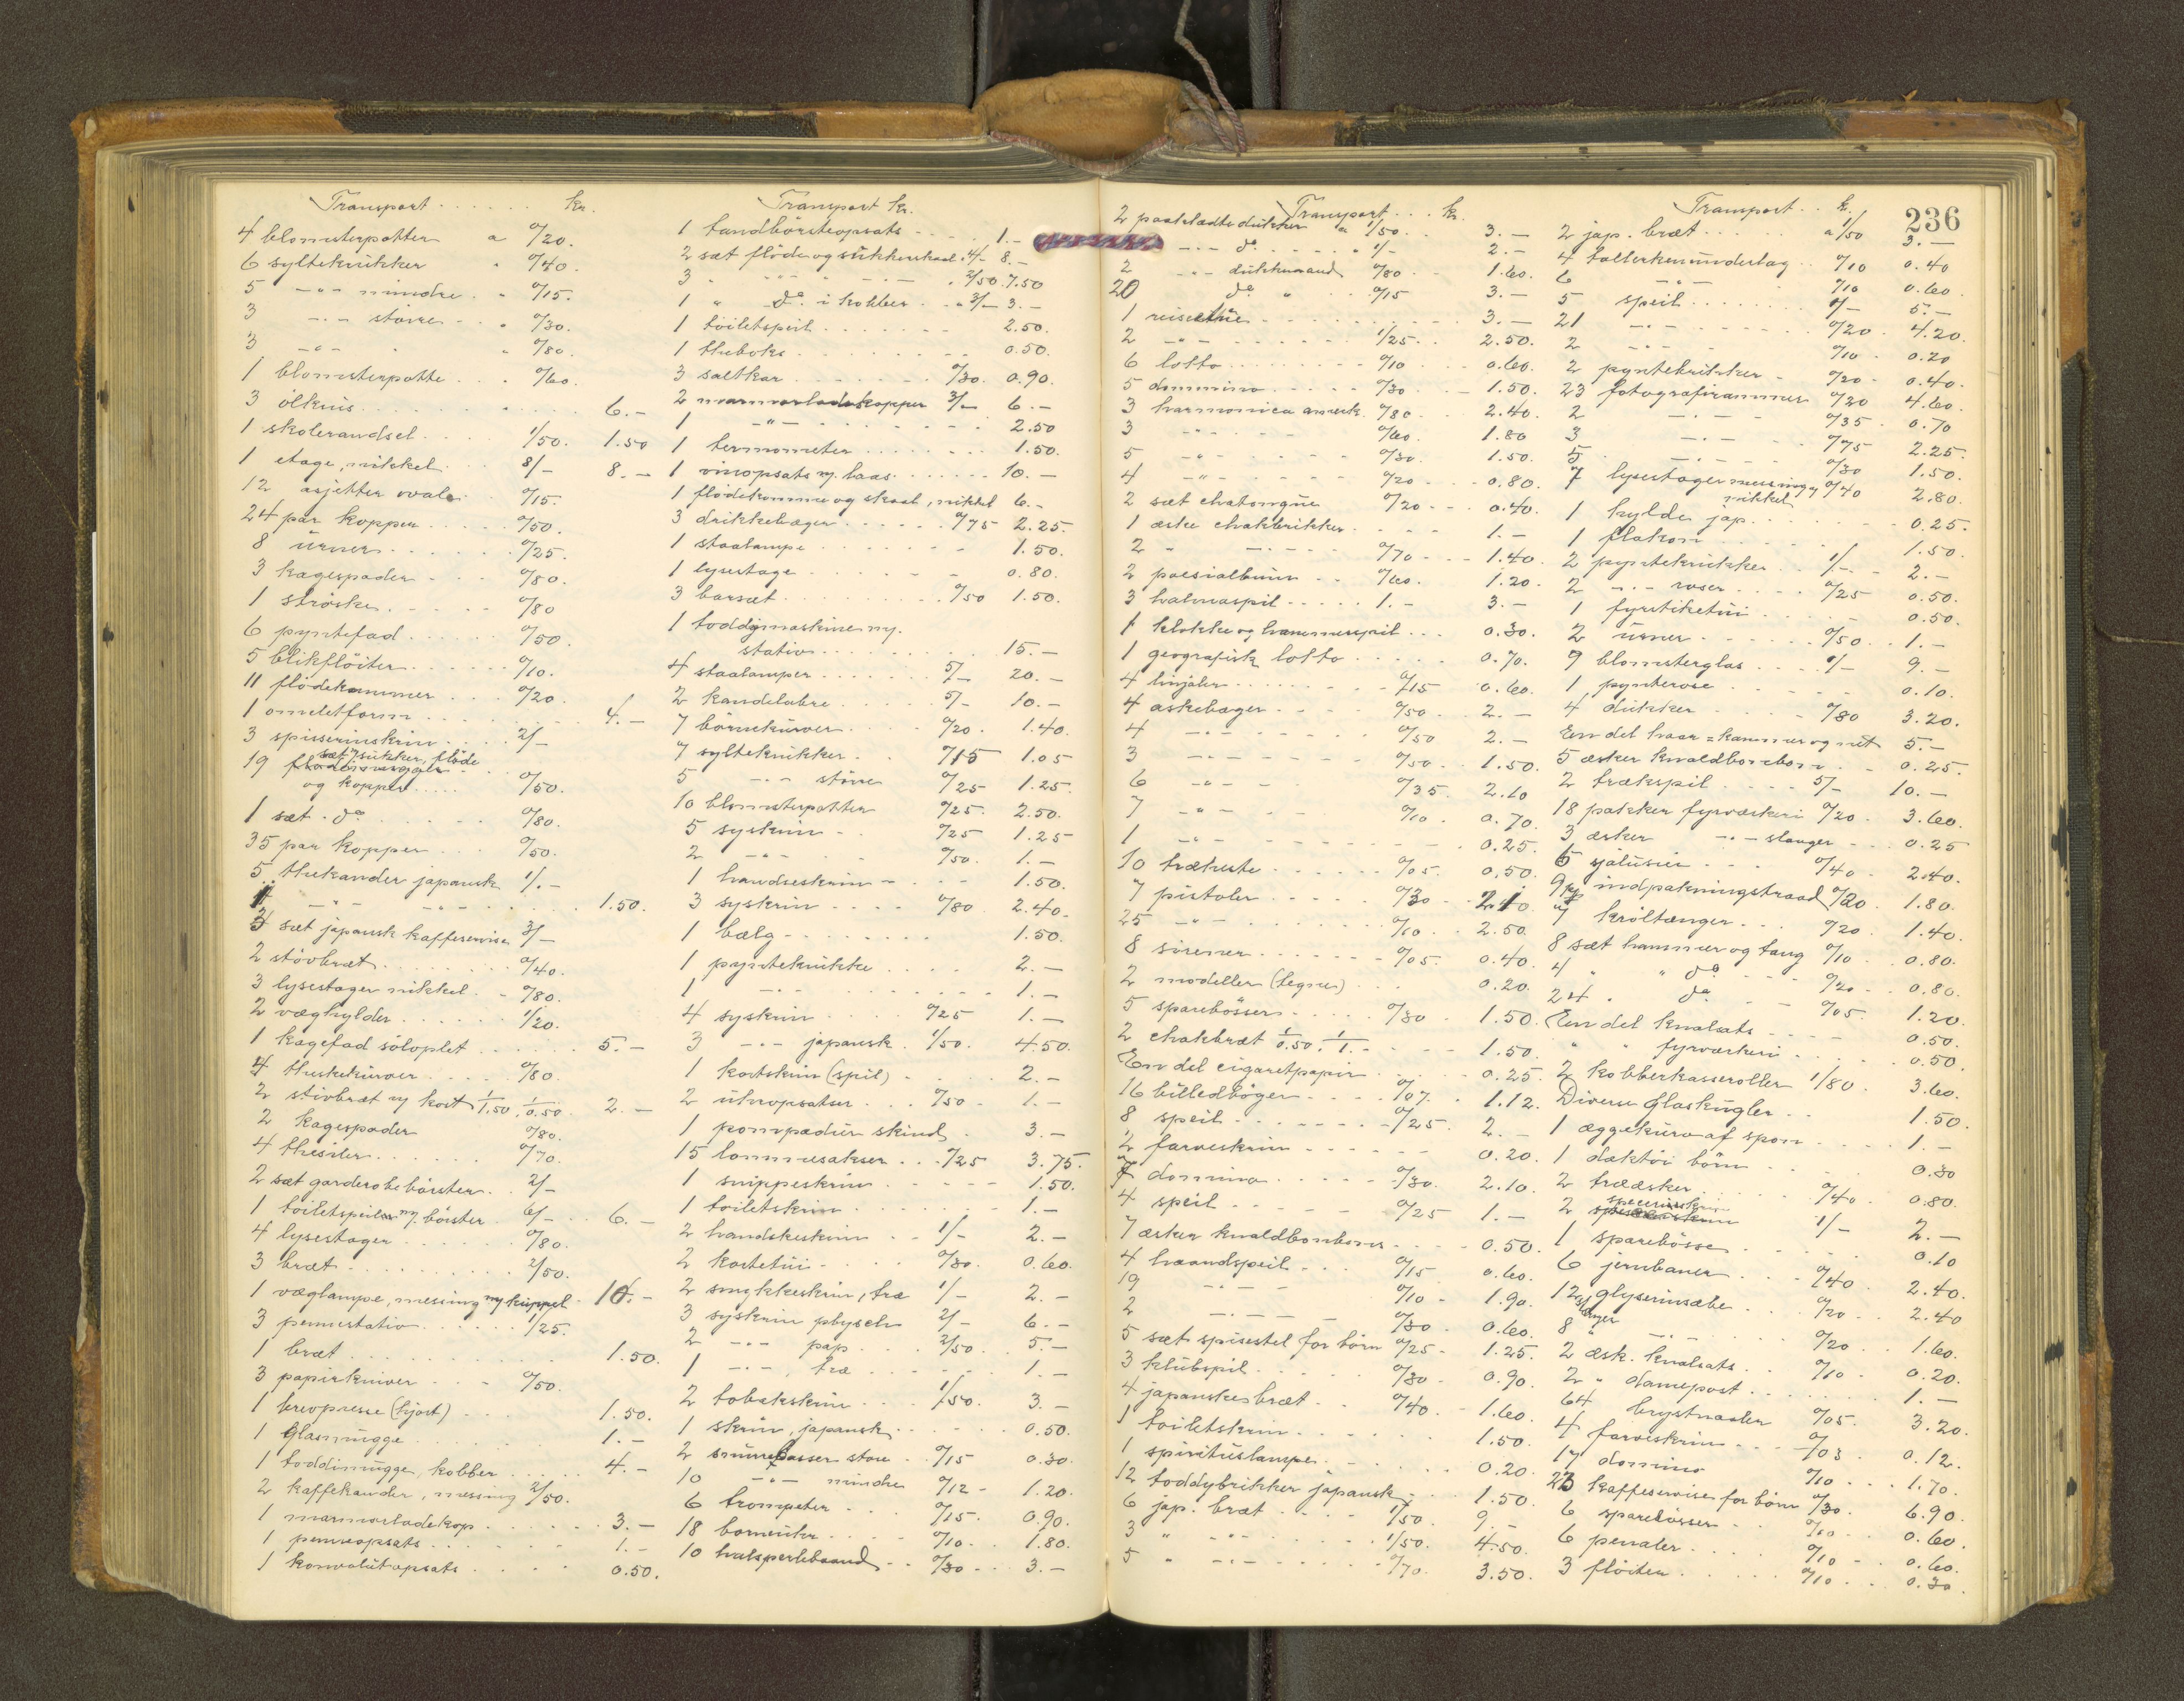 Transport . . . . . . kr.
4 blomsterpotter a 0/20.
6 syltekrukker " 0/40.
5 -"- mindre " 0/15.
3 -"- större " 0/30.
3 -"- " 0/80.
1 blomsterpotte . . . 0/60.
3 ölkrus . . . . 6.-
1 skolerandsel . . . 1/50. 1.50
1 etage, nikkel . . 8/- 8.-
12 asjetter ovale . 0/15.
24 par kopper . . . . 0/50.
8 urner . . . . . 0/25.
3 kagespader . . . 0/80.
1 ströske . . . . . 0/80
6 pyntefad . . . . 0/50.
5 blikflöiter . . . . 0/10.
11 flödekummer . . . 0/20.
1 omeletform . . . . . 4.-
3 spisserinskrin . . . 2/-
19 sæt m/ sukker, flöde
og kopper . . . . . 0/50.
1 sæt do . . . . . 0/80.
35 par kopper . . . 0/50.
5 thekander japansk 1/.-
1 -"- -"- . . . . . 1.50.
3 sæt japansk kaffeservise 3/-
2 stövbræt . . . . . 0/40.
3 lysestager nikkel . - 0/80.
2 væghylder . . . . . 1/20.
1 kagefad söloplet . . . . . 5.-
4 theskekurver . . . . 0/80.
2 stövbræt m/ kost 1/1.50. 1/0.50. 2.-
2 kagespader 0/80.
4 thesiler . . . . . . 0/70.
2 sæt garderobebörster . . 2/-
1 toiletspeil m/. börster . 6/- . . 6.-
4 lysestager . . . . . 0/80.
3 bræt . . . . . . . . 2/50.
1 væglampe, messing m/ kuppel . 10.-
3 pennestativ . . . . . 1/25.
1 bræt . . . . . . . . . 1.50.
3 papirkniver . . . - 0/50.
1 brevpresse (hjort) . . . . 1.50.
1 glasmugge . . . . . . 1.-
1 toddimugge, kobber . . . . . 4.-
2 kaffekander, messing 2/50.
1 marmorladekop . . . . . . 3.-
1 penneopsats . . . . . . 1.-
1 konvolutopsats . . . . . 0.50.
Transport kr.
1 tandbörsteopsats . . . . 1.-
2 sæt flöde og sukkerskaal . 4/- 8.-
3 " -"- -"- . 2/50. 7.50
1 " do. i kobber . . " 3/- 3.-
1 toiletspeil . . . . . . . 2.50.
1 theboks . . . . . . . . 0.50.
3 saltkar . . . . . . . 0/30. 0.90.
2 marmorladekopper 3/- 6.-
1 -"- . . . . . . . . 2.50
1 termometer . . . . . . . 1.50.
1 vinopsats m/. laas . . . . . . 10.-
1 flödekumme og skaal, nikkel 6.-
3 drikkebæger . . . . . . 0/75 2.25.
1 staalampe . . . . . . . - 1.50.
1 lysestage . . . . . - 0.80.
3 barsæt . . . . . . . . . 0/50 1.50.
1 toddymaskine m/.
stativ . . . . . . . . . 15.-
4 staalamper . . . . . . . 5/- 20.-
2 kandelabre . . . . . 5/- 10.-
7 börnekurver . . . . 0/20. 1.40.
7 syltekrukker . . 0/15 1.05
5 -"- större 0/25 1.25.
10 blomsterpotter 0/25. 2.50.
5 syskrin - . 0/25 1.25
2 -"- . 0/50. 1.-
1 handseskrin - . . - 1.50.
3 syskrin . . . . 0/80 2.40.
1 bælg . . . . . . . . 1.50.
1 pyntekrukke . . . . 2.-
1 -"- . . . . . . . . 1.-
4 syskrin . . . . 0/25 1.-
3 -"- japansk . 1/50. 4.50.
1 kortskrin (spil) . . . . 2.-
2 uhropsatser . . . 0/50 - 1.-
1 pompadur skind . 3.-
15 lommesakser . . . 0/25 3.75.
1 snippeskrin . . . . . 1.50.
1 toiletskrin . . . . . . . 1.-
2 handskeskrin . . 1/- 2.-
2 kortetui . . . . . 0/30. 0.60.
2 smykkeskrin, træ 1/- 2.-
3 syskrin plysch 2/- 6.-
2 -"- pap . . 2/50. 5.-
1 -"- træ . . . . 1.-
2 tobakskrin . . . 1/50. 3.-
1 skrin, japansk . . . . . 0.50.
2 snurrebasser store . 0/15 0.30.
10 -"- mindre 0/12 - 1.20.
6 trompeter . . . 0/15. 0.90.
18 börneuhr . . . . 0/10. . 1.80.
10 halsperlebaand . . 0/30 . . . 3.-
236
Transport . . . kr.
2 paaklædte dukker a 1/50. . 3.-
-"- do . . . . . 1/- 2.-
2 -"- dukkemænd 0/80 . . 1.60.
20 do " . . 0/15 3.-
1 reiseetui . . . . . . . . . . 3.-
2 -"- . . . . . . 1/25. . 2.50.
6 lotto . . . . . . . 0/10 . . . 0.60.
5 dommino . . . . . 0/30 . . . 1.50.
3 harmonica amerik. 0/80. . . 2.40.
3 -"- . . . 0/60. 1.80
5 -"- . . . . 0/30. 1.50.
4 -"- . . . . 0/20 . . 0.80.
2 sæt chatongue 0/20 . . . 0.40.
1 æske chakbrikker . . . . 1.-
2 " -"- . . . 0/70 . . 1.40.
2 poesialbum . . 0/60. 1.20.
3 halmaspil . . . . . 1.- 3.-
1 klokke og hammerspil . . . 0.30.
1 geografisk lotto . . . . . 0.70.
4 linjaler . . . . . . . . 0/15 0.60.
4 askebæger . . . . 0/50 . 2.-
4 -"- . . . . . 0/50 2.-
3 -"- . . . . . 0/50. . 1.50.
6 -"- . . 0/35. 2.10
7 -"- 0/10 . 0.70.
1 -"- . . . . . . . . . 0.25.
10 træheste . . . . . . . 0/05. 0.50.
7 pistoler . . . . . . . 0/30 . 2.10.
25 -"- . . . . . . 0/10. . . 2.50.
8 sirener . . . . . . . 0/05. 0.40.
2 modeller (tegne) . . . 0.20.
5 sparebösser . . . . . 0/30 . 1.50.
2 chakbræt 1/0.50. 1/1.- . . . . 1.50.
En del cigaretpapir . . . . 0.25.
16 billedböger . . . . . 0/07. . 1.12.
8 speil . . . . . . . . 0/25. 2.-
2 farveskrin . . . . . . 0.20.
7 domino . . . . . . 0/30. 2.10.
4 speil . . . . . . . 0/25 1.-
7 æsker knaldbonboner . . . . 0.50.
4 haandspeil . . . 0/15 0.60.
19 -"- - 0/10 - 1.90.
2 -"- . . . 0/30 . 0.60.
5 sæt spisestel for börn 0/25 - 1.25.
3 klubspil . . . . . . 0/30 - 0.90.
4 japanske bræt . . 0/40 . 1.60.
1 toiletskrin . . . . . . . . 1.50.
1 spirituslampe . . . . . . 0.20.
12 toddybrikker japansk . . . 1.50.
6 jap. bræt . . . . 1/50. 9.-
3 " -"- . . . . . 1/50. 4.50.
5 " -"- . . . . . 0/70. 3.50.
Transport . . k.
2 jap. bræt . . . . . a 1/50 3.-
4 tallerkenunderlag . 0/10 0.40
6 -"- 0/10 0.60.
5 speil . . . . . . 1/- 5.-
21 -"- . . . . . . 0/20 . 4.20.
2 -"- . . . 0/10 . 0.20
2 pyntekrukker - 0/20 . 0.40.
23 fotografirammer 0/20 4.60.
2 -"- . 0/35 . 0.70
3 -"- . 0/75 2.25.
5 . . . . . 0/30 1.50.
7 lysestager messing m/ nikkel 0/40 2.80.
1 hylde jap . . . . . . . . 0.25.
1 flakon . . . . . . 1.50.
2 pyntekrukker . . 1/- . 2.-
2 -"- roser . . . . 0/25 0.50.
1 fyrstiketui . . . . . - 0.50.
2 urner . . . . . . . 0/50 . . 1.-
9 blomsterglas . . . . 1/- 9.-
1 pynterose . . . . . . . 0.10.
4 dukker . . . . . 0/80 3.20.
En del haar=kammer og net 5.-
5 æsker knaldbonboner . . 0.25.
2 trækspil . . . . . 5/- 10.-
18 pakker fyrværkeri 0/20 . 3.60.
3 æsker -"- slanger . . . 0.25
6 sjalusier . . . 0/40 . 2.40.
9 indpakningstraad 0/20 . 1.80.
7 kröltænger . . . 0/20 . 1.40.
8 sæt hammer og tang 0/10 . . 0.80.
4 " " do . . . 0/20 . . 0.80.
24 " do . . 0/05. 1.20.
En del knalsats . . . 0.50.
" " fyrværkeri . . . . . 0.50.
2 kobberkasseroller 1/80. 3.60.
Diverse glaskugler . . 1.50.
1 æggekurv af spon . . . . . 1.-
1 dæktöi börn . . . 0.30
2 trææsker . . . . . 0/40 . . 0.80.
2 specerieskrin 1/- 2.-
1 sparebösse . . . . . 0.10
6 jernbaner . . . 0/40 2.40.
12 glyserinsæbe . . . 0/20 . . 2.40
8 " -"- 0/20 . . 1.60.
2 æsk. knalsats . . . 0/10 . . 0.20.
2 " damepost . . . . . . 1.-
64 brystnaaler 0/05. 3.20.
4 farveskrin . . . 0/03 . 0.12.
17 domino 0/10 . . 1.70.
23 kaffeservise for börn 0/30. 6.90.
6 sparebösser . . 0/10 . . 0.60.
6 penaler . . . . . 0/10 - . 0.60.
3 flöiter . . . . . 0/10 . . . 0.30.